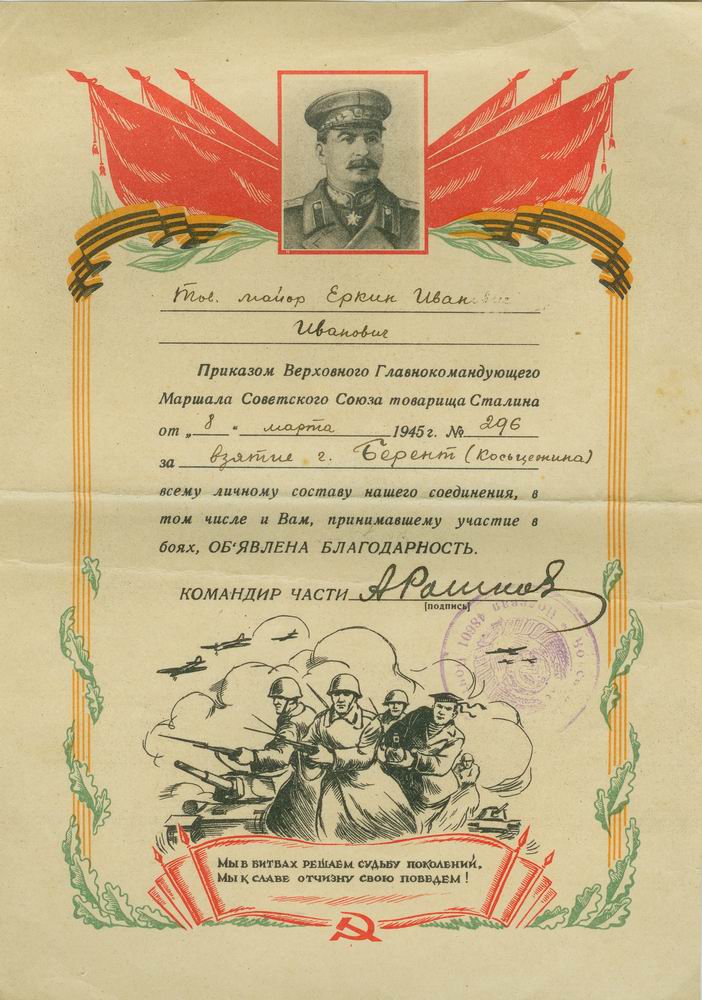 Тов. майор Еркин Иванович
Иванович
Приказом Верховного Главнокомандующего
Маршала Советского Союза товарища Сталина
от „8“ марта 1945 г. № 296
за взятие г. Берент (Косьцежина)
всему личному составу нашего соединения, в
том числе и Вам, принимавшему участие в
боях, ОБ‘ЯВЛЕНА БЛАГОДАРНОСТЬ.
КОМАНДИР ЧАСТИ
[подпись]
48601
Мы в битвах решаем судьбу поколений,
Мы к славе отчизну свою поведем!